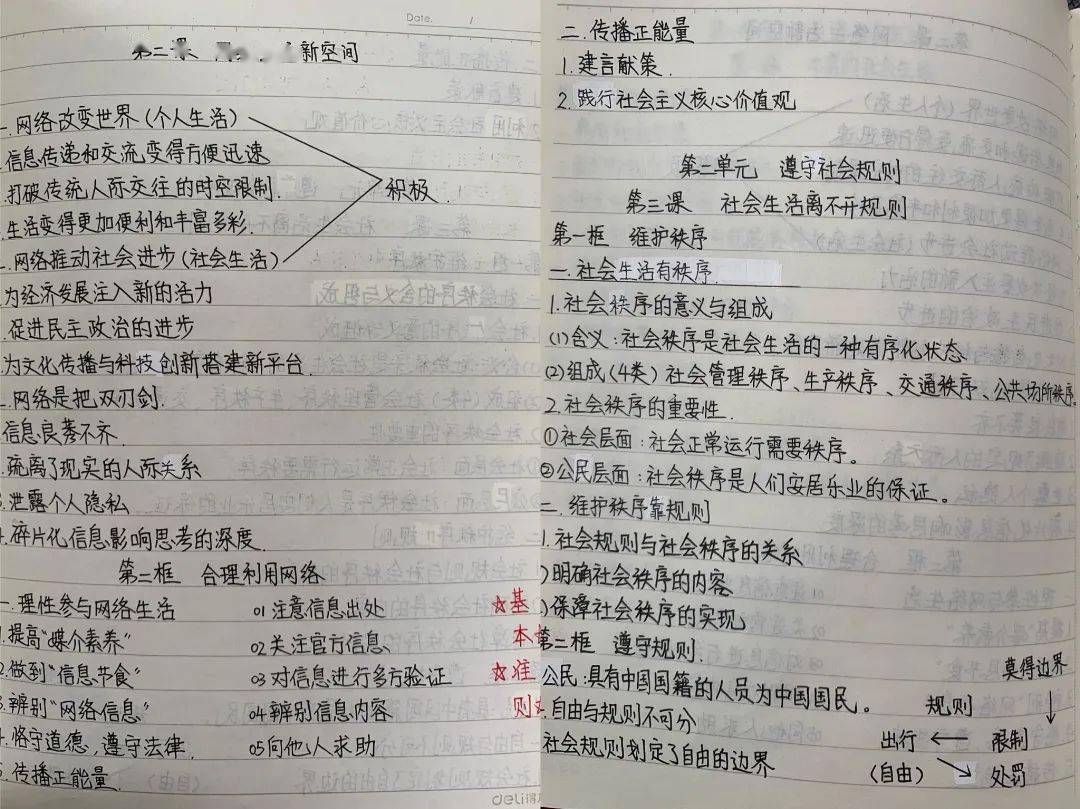 Date. /
第二课 新空间
一.网络改变世界(个人生活)
信息传递和交流,变得方便迅速
打破传统人际交往的时空限制.
积极.
生活变得更加便利和丰富多彩.
二.网络推动社会进步(社会生活)
为经济发展注入新的活力
促进民主政治的进步
为文化传播与科技创新搭建新平台.
网络是把双刃剑.
信息良莠不齐.
疏离了现实的人际关系
泄露个人隐私
碎片化信息影响思考的深度.
第二框 合理利用网络
一.理性参与网络生活 01 注意信息出处 ☆基
1.提高"媒介素养" 02 关注官方信息 本
2.做到"信息节食" 03 对信息进行多方验证 ☆准
3.辨别"网络信息" 04 辨别信息内容 则
恪守道德,遵守法律. 05 向他人求助
传播正能量.
deli得
二.传播正能量
1.建言献策.
2.践行社会主义核心价值观
第二单元 遵守社会规则
第三课 社会生活离不开规则
第一框 维护秩序
一.社会生活有秩序.
1.社会秩序的意义与组成
(1)含义:社会秩序是社会生活的一种有序化状态
(2)组成(4类)社会管理秩序、生产秩序、交通秩序、公共场所秩序。
2.社会秩序的重要性.
①社会层面:社会正常运行需要秩序。
②公民层面:社会秩序是人们安居乐业的保证。
二.维护秩序靠规则
1.社会规则与社会秩序的关系
)明确社会秩序的内容
)保障社会秩序的实现
第二框 遵守规则.
莫得边界
公民:具有中国国籍的人员为中国国民。 规则
自由与规则不可分
出行 ← 限制
社会规则划定了自由的边界
(自由) 处罚